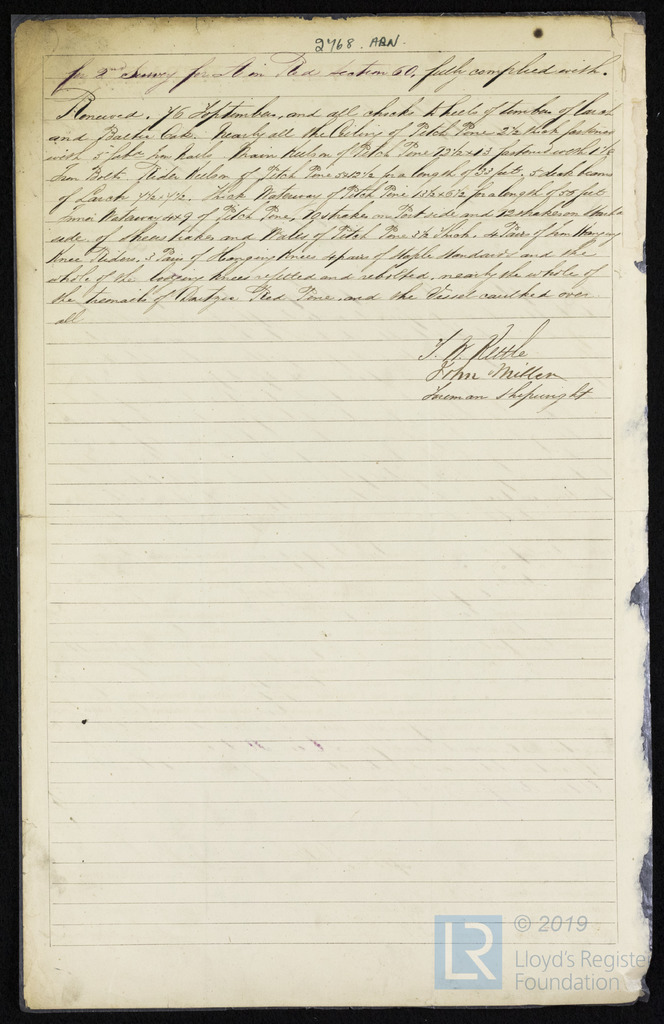 2768. ABN.
for 2nd Survey for A in Red Section 60, fully complied with.
Renewed. 76 Toptimbers, and all chocks to heels of timbers of Larch
and Baltic Oak. Nearly all the Ceiling of Pitch Pine 2½ thick fastened
with 5 Iron Nails. Main Keelson of Pitch Pine 13½ x 13 fastened with 1⅛
Iron Bolts. Rider Keelson of Pitch Pine 12½ for a length of 53 feet. 5 deck beams
of Larch 7½ x 7½. Thick Waterway of Pitch Pine for a length of 55 feet
Inner Waterway 4 x 9 of Pitch Pine, 10 strakes on Port side and 12 strakes on Starbd
side of Sheerstrakes and Wales of Pitch Pine 3½ Thick. 4 Pairs of Iron Hanging
Knee Riders. 3 Pairs of Hanging Knees 4 pairs of Staple Standards and the
whole of the lodging knees refitted and rebolted, nearly the whole of
the treenails of Dantzic Red Pine, and the Vessel caulked over
all
T. W. Kettle
John Miller
Foreman Shipwright
LR
© 2019
Lloyd's Register
Foundation